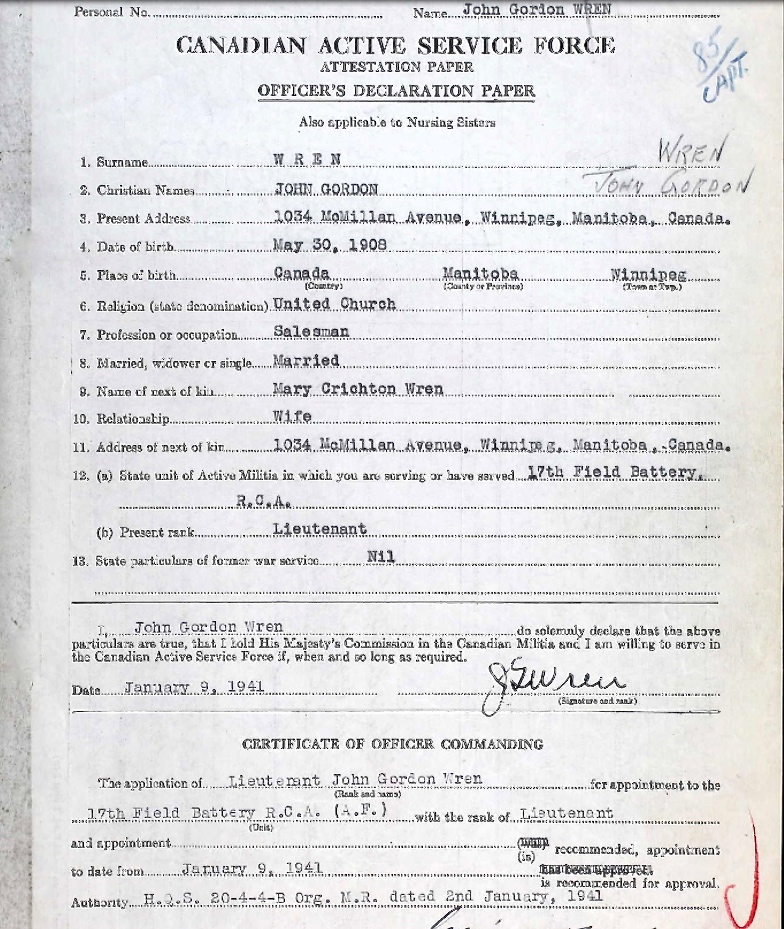 Personal No. Name John Gordon WREN
CANADIAN ACTIVE SERVICE FORCE
ATTESTATION PAPER
OFFICER'S DECLARATION PAPER
85/CAPT.
Also applicable to Nursing Sisters
WREN
JOHN GORDON
1. Surname W R E N
2. Christian Names JOHN GORDON
3. Present Address 1034 McMillan Avenue, Winnipeg, Manitoba, Canada.
4. Date of birth May 30, 1908
5. Place of birth Canada Manitoba Winnipeg
(Country) (County or Province) (Town or Twp.)
6. Religion (state denomination) United Church
7. Profession or occupation Salesman
8. Married, widower or single Married
9. Name of next of kin Mary Crichton Wren
10. Relationship Wife
11. Address of next of kin 1034 McMillan Avenue, Winnipeg, Manitoba, Canada.
12. (a) State unit of Active Militia in which you are serving or have served 17th Field Battery,
R.C.A.
(b) Present rank Lieutenant
13. State particulars of former war service Nil
I, John Gordon Wren do solemnly declare that the above
particulars are true, that I hold His Majesty's Commission in the Canadian Militia and I am willing to serve in
the Canadian Active Service Force if, when and so long as required.
Date January 9, 1941 JGWren
(Signature and rank)
CERTIFICATE OF OFFICER COMMANDING
The application of Lieutenant John Gordon Wren for appointment to the
(Rank and name)
17th Field Battery R.C.A. (A.F.) with the rank of Lieutenant
(Unit)
and appointment recommended, appointment
(is)
to date from January 9, 1941 has been approved.
is recommended for approval.
Authority H.Q.S. 20-4-4-B Org. M.R. dated 2nd January, 1941